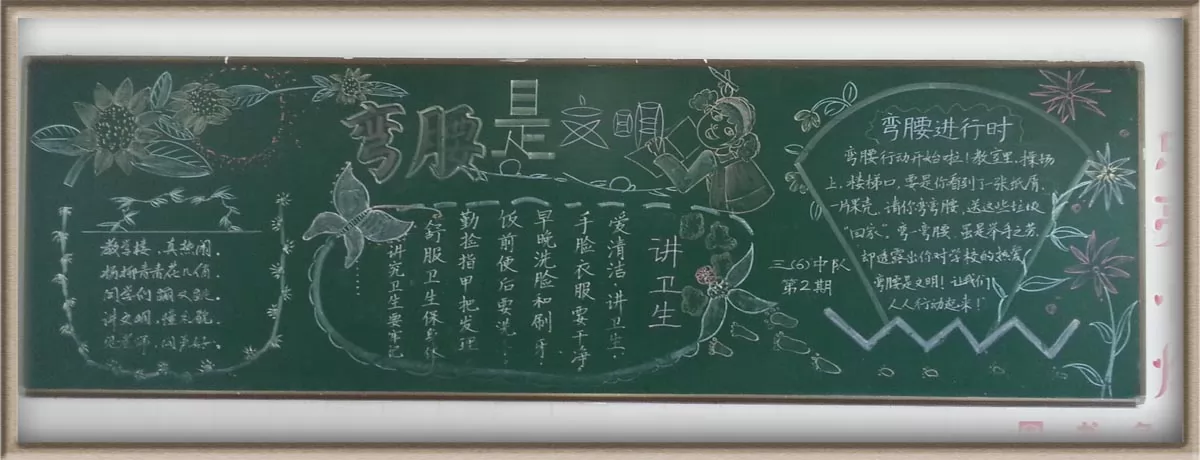 弯腰是文明
教学楼，真热闹。
杨柳青青花儿俏。
同学们
讲文明，懂礼貌。
见老师，问声好。
讲卫生
爱清洁，讲卫生，
手脸衣服要干净，
早晚洗脸和刷牙，
饭前便后要洗……
勤捡指甲把发理
舒服卫生保身体
讲究卫生要牢记
三(6)中队
第2期
弯腰进行时
弯腰行动开始啦！教室里、操场
上、楼梯口，要是你看到了一张纸屑，
一片果壳，请你弯弯腰，送这些垃圾
“回家”。弯一弯腰，虽是举手之劳，
却透露出你对学校的热爱，
弯腰是文明！让我们
人人行动起来！